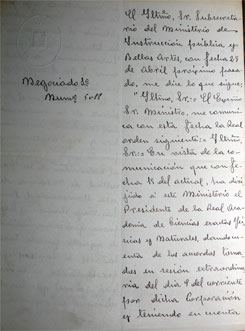 Negociado 1º
El Iltmo. Sr. Subsecreta
rio del Ministerio de
Instrucción pública y
Bellas Artes, con fecha 23
de Abril próximo pasa
do, me dice lo que sigue:
"Iltmo. Sr.: El Excmo
Sr. Ministro, me comuni
ca con esta fecha la Real
orden siguiente: Iltmo.
Sr.: En vista de la co
municación que con fe
cha 15 del actual, ha diri
gido a este Ministerio el
Presidente de la Real Aca
demia de Ciencias exactas Fí
sicas y Naturales, dando cu
enta de los acuerdos toma
dos en sesión extraordina
ria del día 9 del corriente
por dicha Corporación
y teniendo en cuenta